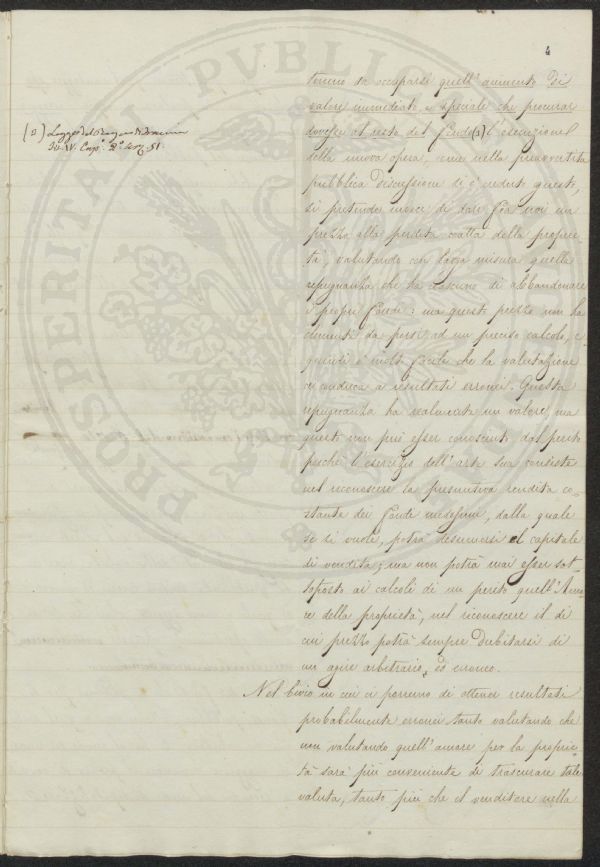 4
tenuto da occuparsi quell'aumento di
valore immediato, e speciale che procurar
dovesse al resto del fondo (2) l'esecuzione
della nuova opera, come nella
pubblica discussione si è veduto questo,
si pretende invece di dare fra noi un
prezzo alla perdita coatta della proprie-
tà, valutando con larga misura quella
repugnanza che ha ciascuno di abbandonare
i propri fondi: ma questo prezzo non ha
elementi da porsi ad un preciso calcolo, e
quindi è molto facile che la valutazione
ci conduca a resultati erronei. Questa
repugnanza ha realmente un valore, ma
questo non può esser conosciuto dal perito
perché l'esercizio dell'arte sua consiste
nel riconoscere la presuntiva rendita co-
stante dei fondi medesimi, dalla quale
se si vuole, potrà desumersi el capitale
di vendita; ma non potrà mai esser sot-
toposto ai calcoli di un perito quell'Amo-
re della proprietà, nel riconoscere il di
cui prezzo potrà sempre dubitarsi di
un agire arbitrario, ed erroneo.
Nel bivio in cui ci porremo di ottener resultati
probabilmente erronei tanto valutando che
non valutando quell'amore per la proprie-
tà sarà più conveniente di trascurare tale
valuta, tanto più che el venditore nella
(2)
51.
PROSPERITATI PVBLICAE